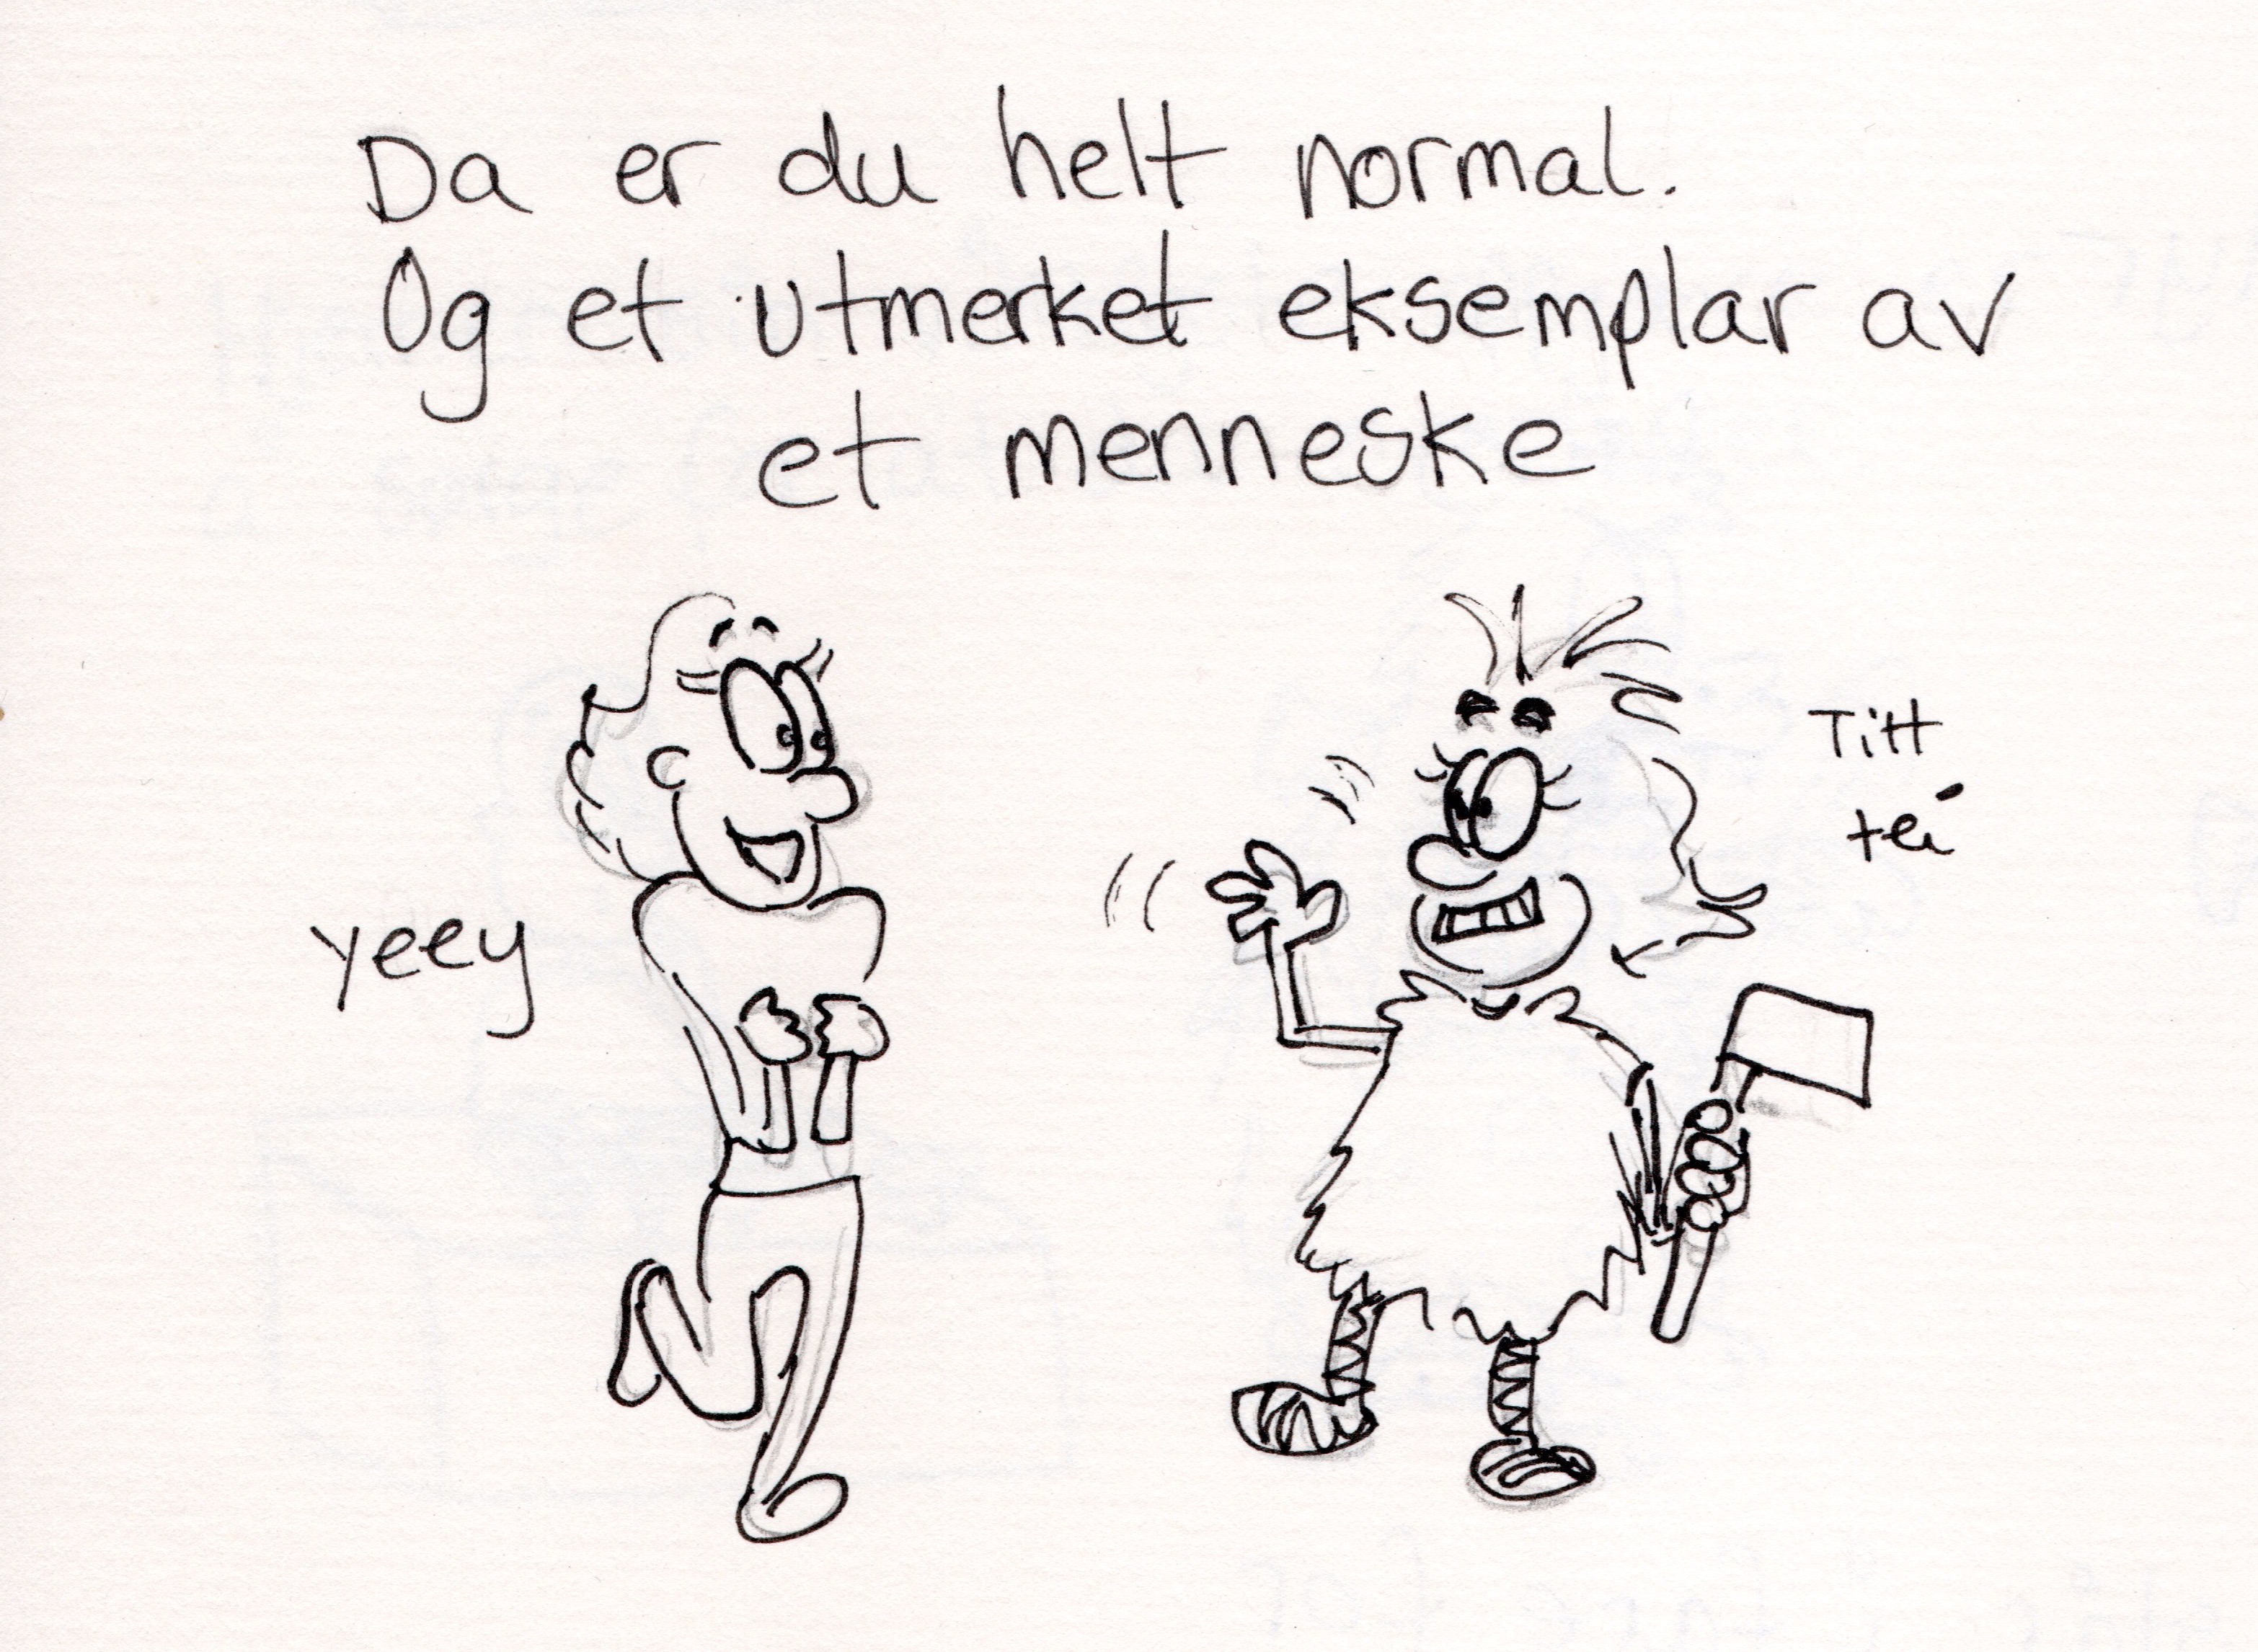 Da er du helt normal.
Og et utmerket eksemplar av
et menneske
Titt
tei
yeey